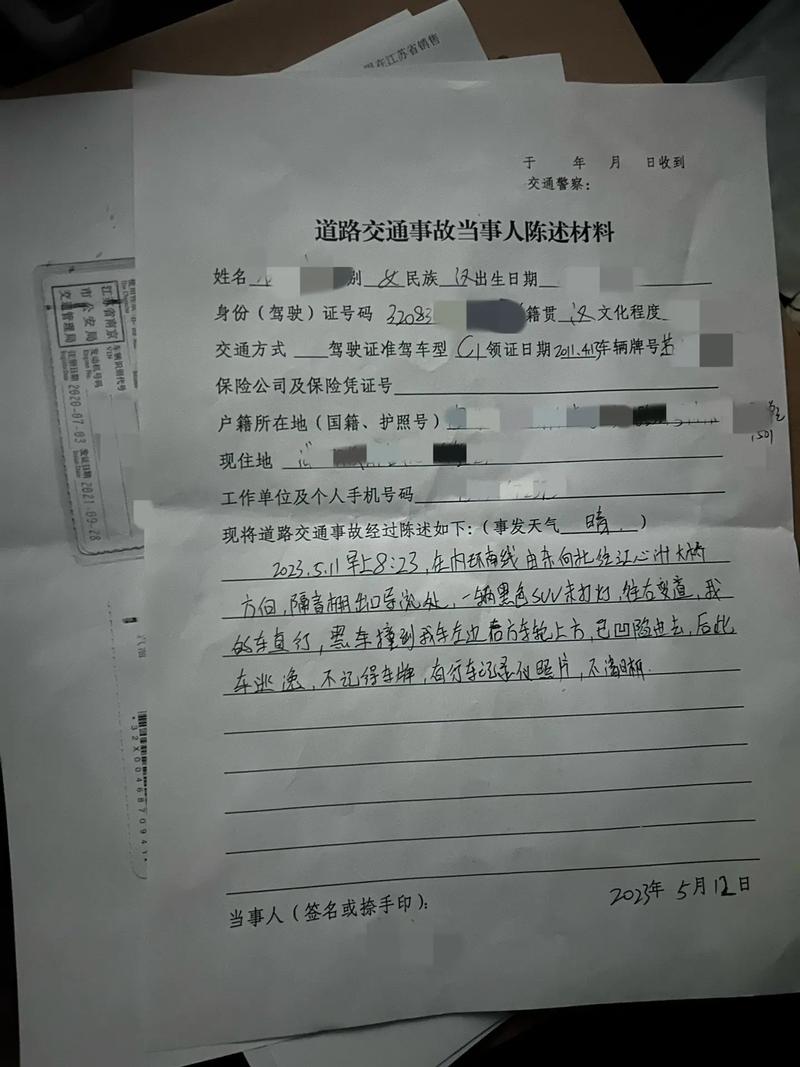 江苏省销售
于 年 月 日收到
交通警察:
道路交通事故当事人陈述材料
姓名 别 女 民族 汉 出生日期
身份(驾驶)证号码 32083 籍贯 汉 文化程度
交通方式 驾驶证准驾车型 C1 领证日期 2011.4.13 车辆牌号 苏
保险公司及保险凭证号
户籍所在地(国籍、护照号)
1501
现住地
工作单位及个人手机号码
现将道路交通事故经过陈述如下:(事发天气 晴.)
2023.5.11早上8:23,在内环南线由东向北经江心洲大桥
方向,隔音棚出口导流处,一辆黑色SUV未打灯,往右变道,我
的车直行,黑车撞到我车左边 方车轮上方,已凹陷进去,后此
车逃逸,不记得车牌,有行车记录仪照片,不清晰.
当事人(签名或捺手印):
2023年 5月12日
江苏省南京
市公安局
交通管理局
车辆识别代号
发动机号码
注册日期 2020-07-03 发证日期 2021-09-28
*32X0046870941*